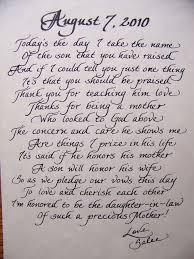 August 7, 2010
Today's the day I take the name
Of the son that you have raised
And if I could tell you just one thing
It's that you should be praised
Thank you for teaching him love
Thanks for being a mother
Who looked to God above
The concern and care he shows me
Are things I prize in his life
It's said if he honors his mother
A son will honor his wife
So as we pledge our vows this day
To love and cherish each other
I'm honored to be the daughter-in-law
Of such a precious Mother!
Love